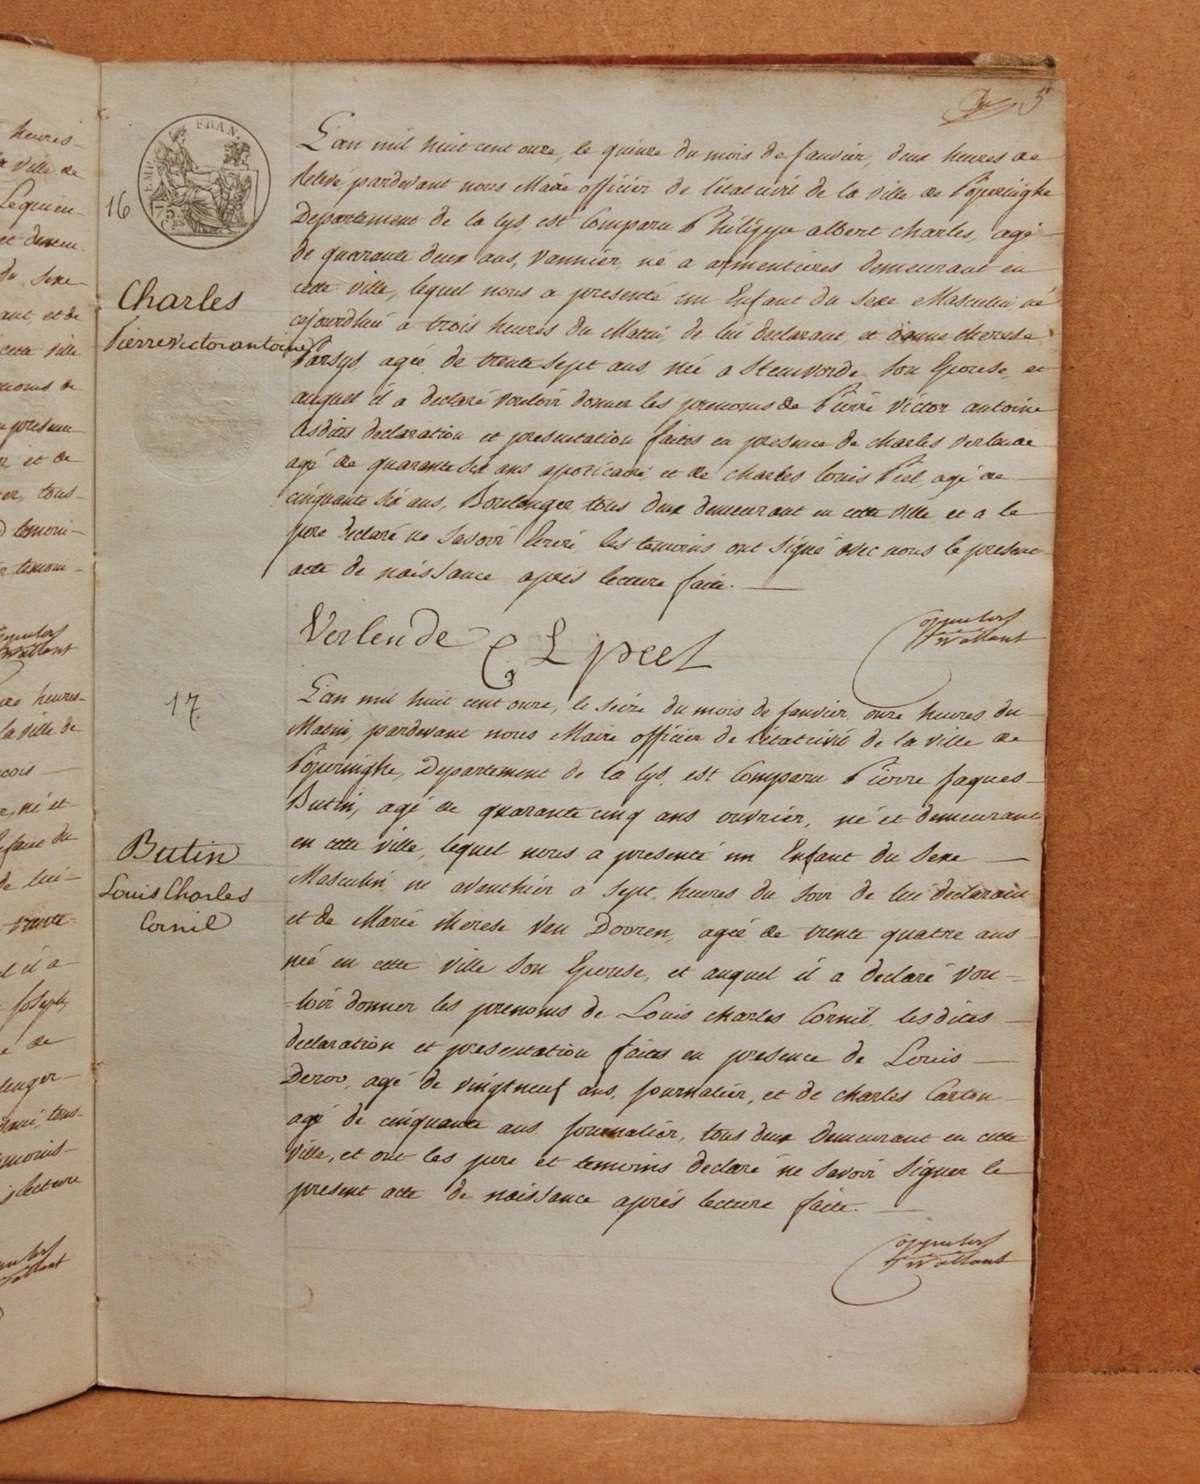 5
EMP. FRAN.
75
16
Charles
Pierre victor antoine
L'an mil huit cent onze, le quinze du mois de Janvier, deux heures de
Relevé pardevant nous Maire officier de l'état civil de la ville de Poperinghe
Departement de la Lys est Comparu Philippe albert Charles, agé
de quarante deux ans, vannier, né a armentieres demeurant en
cette ville, lequel nous a presenté un Enfant du Sexe Masculin né
cejourdhui a trois heures du Matin, de lui declarant, et d'anne therese
Parsys agée de trente sept ans née a Steenvorde Son Epouse, et
auquel il a declaré vouloir donner les prenoms de Pierre Victor antoine
Lesdites declaration et presentation faites en presence de charles verlende
agé de quarante six ans apoticaire et de Charles Louis Peel agé de
cinquante six ans, Boulanger, tous deux demeurant en cette ville, et a le
pere declaré ne Savoir Ecrire, les temoins ont Signé avec nous le present
acte de naissance après lecture faite.
Verlende C L peel
17
Butin
Louis Charles
Cornil
L'an mil huit cent onze, le Seize du mois de Janvier, onze heures du
Matin, pardevant nous Maire officier de l'etat civil de la ville de
Poperinghe, Departement de la Lys, est Comparu Pierre Jaques
Butin, agé de quarante cinq ans ouvrier, né et demeurant
en cette ville, lequel nous a presenté un Enfant du Sexe
Masculin, né avanthier a Sept heures du Soir de lui declarant
et de Marie therese Van Dooren, agée de trente quatre ans
née en cette ville Son Epouse, et auquel il a declaré vou-
-loir donner les prenoms de Louis charles Cornil, lesdites
declaration et presentation faites en presence de Louis
Deroo, agé de vingtneuf ans, journalier, et de charles Carton
agé de cinquante ans journalier, tous deux demeurant en cette
ville, et ont les pere et temoins declaré ne Savoir Signer le
present acte de naissance après lecture faite.